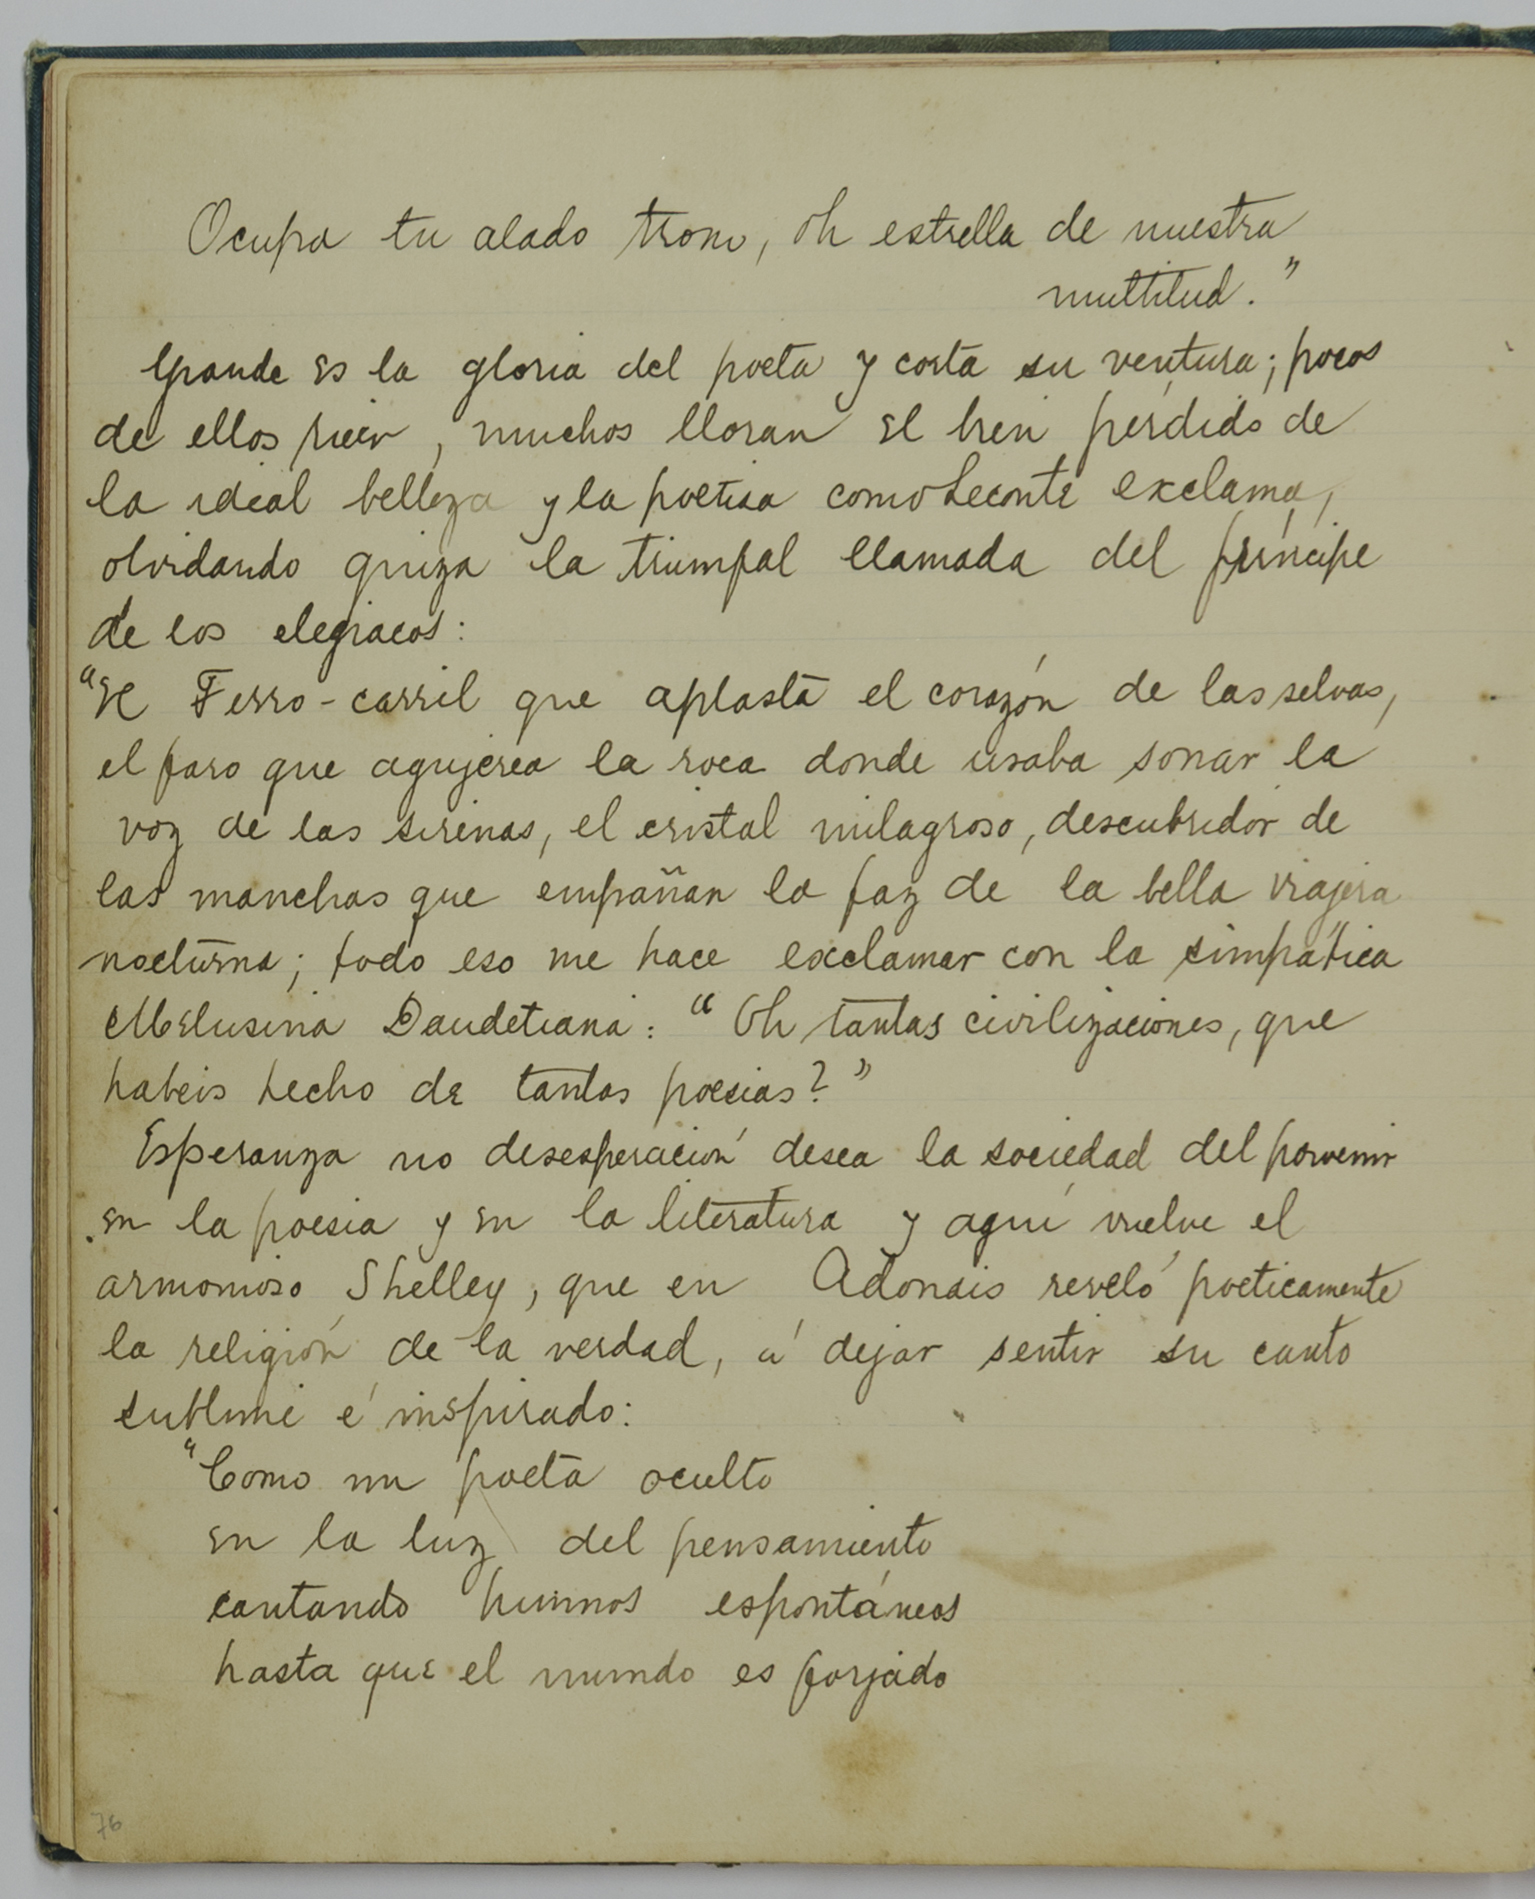 Ocupa tu alado trono, oh estrella de nuestra
multitud."
Grande es la gloria del poeta y corta su ventura; pocos
de ellos rien, muchos lloran el bien perdido de
la ideal belleza y la poetisa como Leconte exclama,
olvidando quiza la triumfal llamada del príncipe
de los elegiacos:
"El Ferro-carril que aplasta el corazón de las selvas,
el faro que agujerea la roca donde usaba sonar la
voz de las sirenas, el cristal milagroso, descubridor de
las manchas que empañan la faz de la bella viajera
nocturna; todo eso me hace exclamar con la simpática
Melusina Daudetiana: "Oh tantas civilizaciones, que
habeis hecho de tantas poesias?"
Esperanza no desesperación desea la sociedad del porvenir
en la poesia y en la literatura y aquí vuelve el
armonioso Shelley, que en Adonais reveló poeticamente
la religión de la verdad, á dejar sentir su canto
sublime é inspirado:
"Como un poeta oculto
en la luz del pensamiento
cantando himnos espontáneos
hasta que el mundo es forjado
76